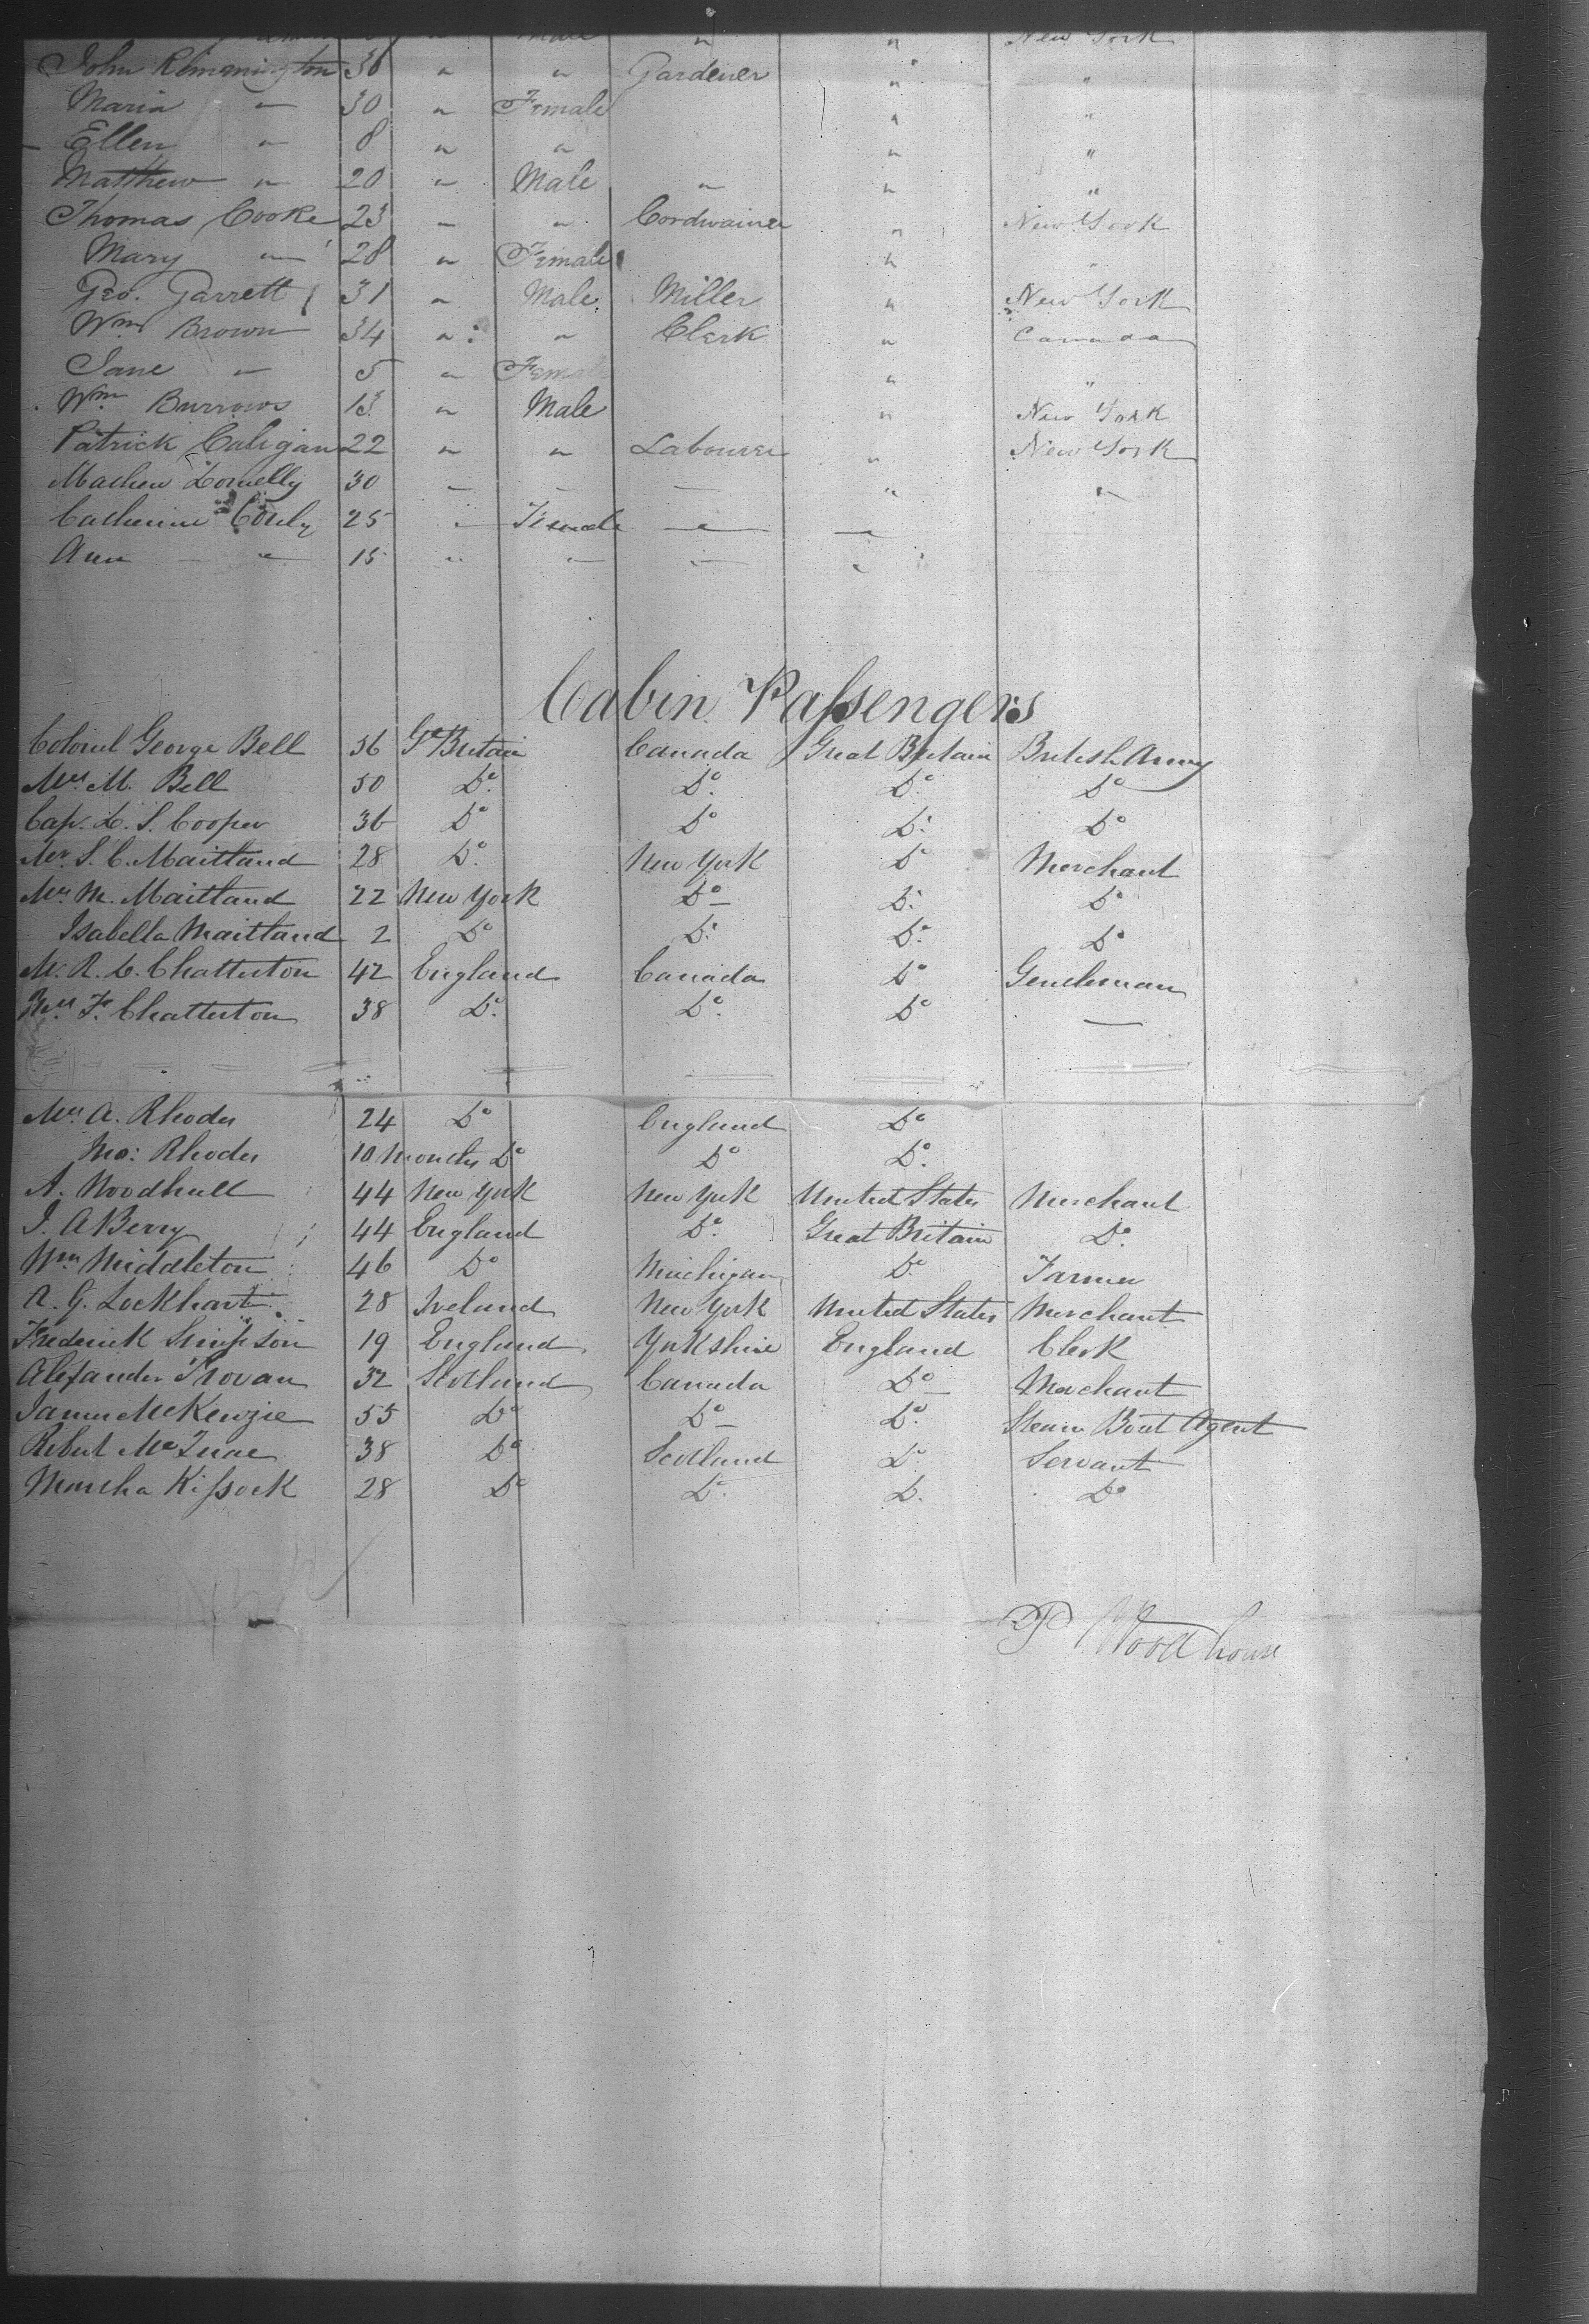 Male " " New York
John Remmington 36 " " Gardener " "
Maria " 30 " Female " "
Ellen " 8 " " " "
Matthew " 20 " Male " " "
Thomas Cooke 23 " " Cordwainer " New York
Mary " 28 " Female " "
Geo. Garrett 31 " Male Miller " New York
Wm Brown 34 " " Clerk " Canada
Jane " 5 " Female " "
Wm Burrows 13 " Male " New York
Patrick Caligan 22 " " Labourer " New York
Mathew Donnelly 30 " " " " "
Catherine 25 " Female " "
Ann " 15 " " " "
Cabin Passengers
Colonel George Bell 56 Gt Britain Canada Great Britain British Army
Mrs. M. Bell 50 Do. Do. Do. Do
Cap. L. S. Cooper 36 Do Do Do. Do
Mr. S. C. Maitland 28 Do. New York Do Merchant
Mrs. M. Maitland 22 New York Do Do. Do
Isabella Maitland 2 Do Do. Do. Do
Mr. R. L. Chatterton 42 England Canada Do Gentleman
Mrs. F. Chatterton 38 Do. Do. Do —
Mrs. A. Rhodes 24 Do England Do
Rhodes 10 Months Do Do Do.
A. Woodhull 44 New York New York United States Merchant
J. A Berry 44 England Do. Great Britain Do.
Wm Middleton 46 Do Michigan Do. Farmer
A. G. Lockhart 28 Ireland New York United States Merchant
Frederick Simpson 19 England Yorkshire England Clerk
Alexander Provan 32 Scotland Canada Do Merchant
James McKenzie 55 Do Do Do. Steam Boat Agent
Robert 38 Do Scotland Do. Servant
Kissock 28 Do Do. Do. Do
Woodhouse